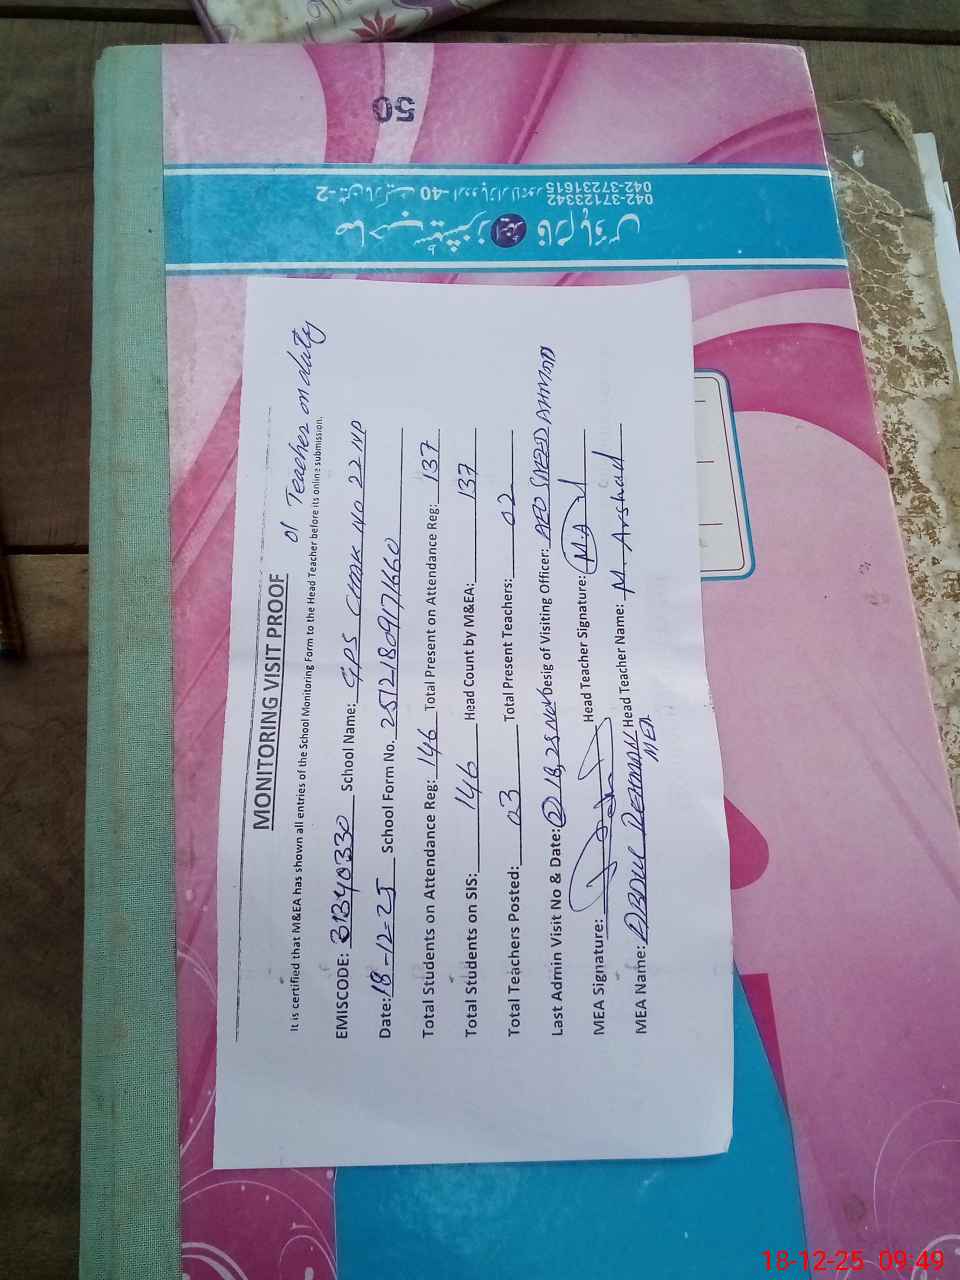 50
صاحب سٹیشنرز اینڈ فارم ہاؤس
2- 40- اردو بازار لاہور
042-37123342
042-37231615
MONITORING VISIT PROOF
01 Teacher on duty
It is certified that M&EA has shown all entries of the School Monitoring Form to the Head Teacher before its online submission.
EMISCODE: 31340330 School Name: GPS CHAK NO 22 NP
Date: 18-12-25 School Form No. 25121809171660
Total Students on Attendance Reg: 146 Total Present on Attendance Reg: 137
Total Students on SIS: 146 Head Count by M&EA: 137
Total Teachers Posted: 03 Total Present Teachers: 02
Last Admin Visit No & Date: 02 18, 25 NOV Desig of Visiting Officer: AEO SAEED AHMAD
MEA Signature: Head Teacher Signature: M.A
MEA Name: ABDUL REHMAN MEA Head Teacher Name: M. Arshad
18-12-25 09:49